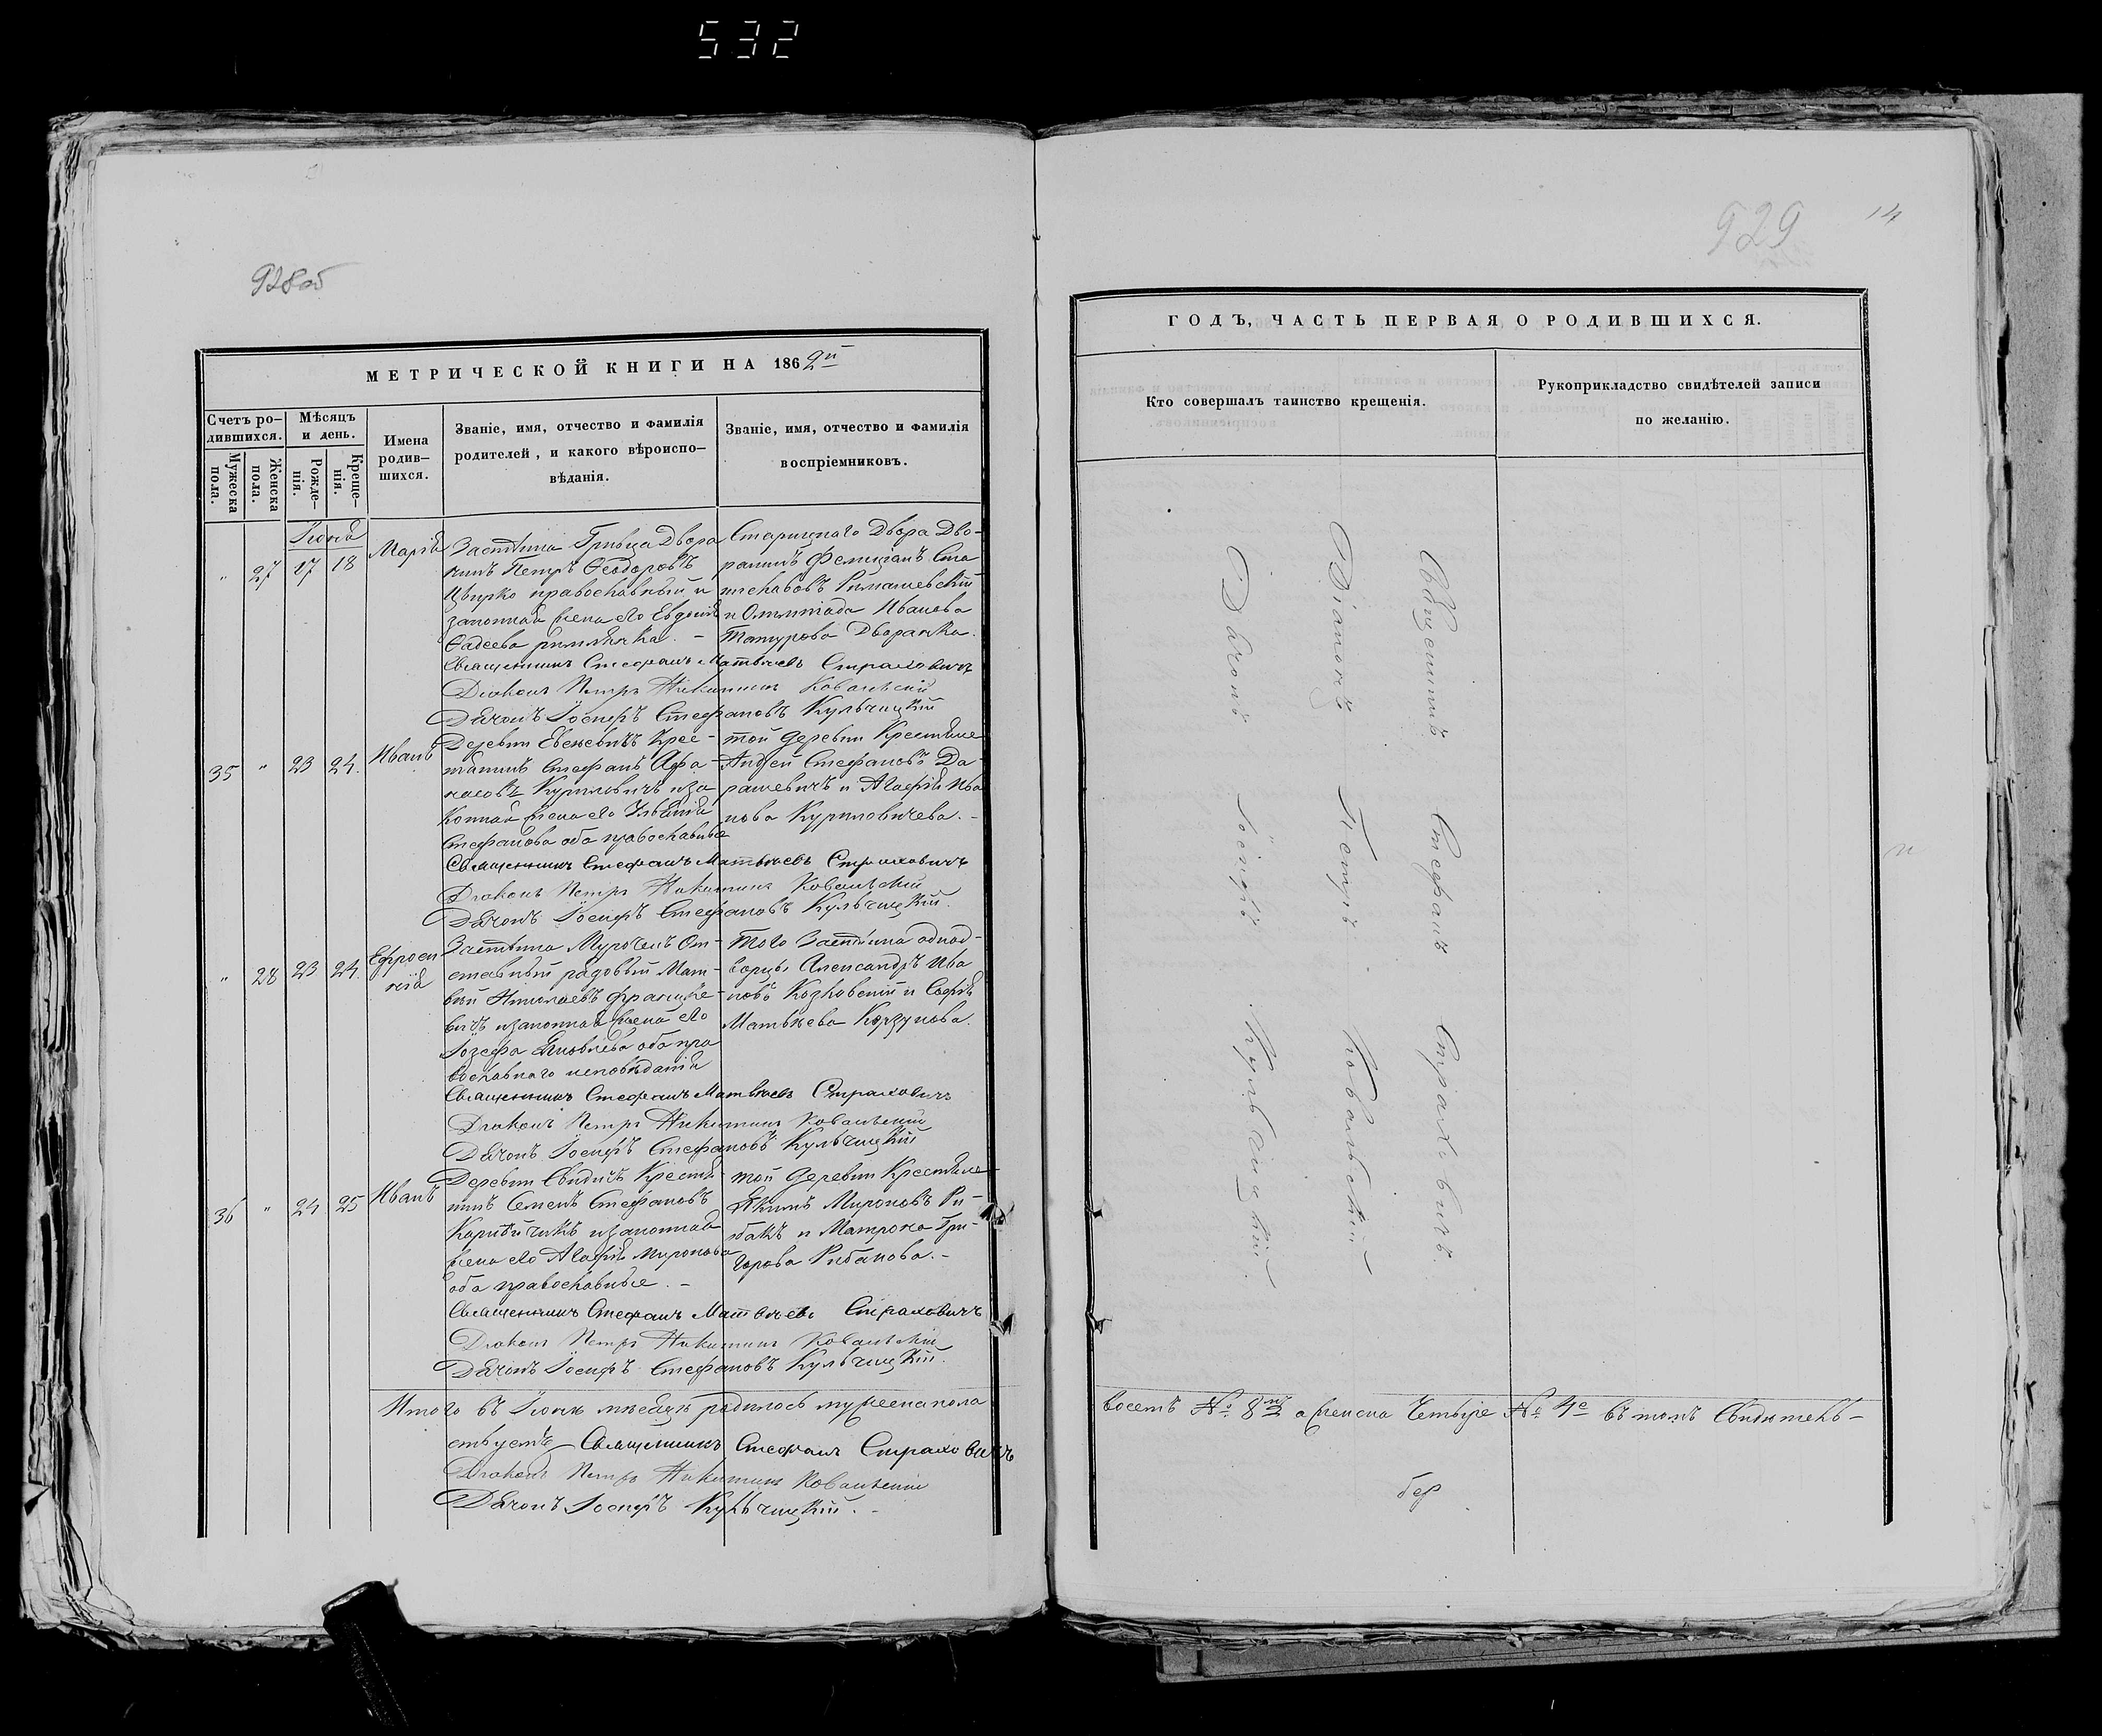 532
928об
МЕТРИЧЕСКОЙ КНИГИ НА 1862й
Счетъ ро-
дившихся.
Мужеска
пола.
Женска
пола.
Мѣсяцъ
и день.
Рожде-
нія.
Креще-
нія.
Имена
родив-
шихся.
Званіе, имя, отчество и фамилія
родителей, и какого вѣроиспо-
вѣданія.
Званіе, имя, отчество и фамилія
воспріемниковъ.
Іюня
" 27 17 18 Марія
Застѣнка Гривца Двора
нинъ Петръ Ѳеодоровъ
Цвирко православный и
законная жена его Евдокія
Ѳадеева римлянка. -
Старицкаго Двора Дво-
ранинъ Фелиціанъ Ста
ниславовъ Римашевскій
и Олимпіада Иванова
Татурова Дворанка.
Священникъ Стефанъ Матвѣевъ Страховичъ
Діаконъ Петръ Никитинъ Ковалевскій
Дячокъ Іосифъ Стефановъ Кульчицкій
35 " 23 24. Иванъ
Деревни Евсевичъ Крес-
тянинъ Стефанъ Афа-
насовъ Куриловичъ иза
конная жена его Ульянія
Стефанова оба православные
той деревни Крестяне
Андрей Стефановъ Да-
рашевичъ и Агафія Ива
нова Куриловичева. -
Священникъ Стефанъ Матвѣевъ Страховичъ
Діаконъ Петръ Никитинъ Ковалевскій
Дячокъ Іосифъ Стефановъ Кульчицкій.
" 28 23 24. Ефроси
нія
Застѣнка Мурочекъ От-
ставный рядовый Мат-
вей Николаевъ Францке-
вичъ изаконная жена его
Іозефа Яковлева оба пра
вославнаго исповѣданія
Того Застѣнка однод-
ворцы Александръ Ива
новъ Козловскій и Софія
Матвѣева Корзунова.
Священникъ Стефанъ Матвѣевъ Страховичъ
Діаконъ Петръ Никитинъ Ковалевскій
Дячокъ Іосифъ Стефановъ Кульчицкій
36 " 24 25 Иванъ
Деревни Свидичъ Крестя-
нинъ Семенъ Стефановъ
изаконная
жена его Агафія Миронова
оба православные. -
той деревни Крестяне
Якимъ Мироновъ Ри-
бакъ и Матрона Гри-
горова Рибакова. -
Священникъ Стефанъ Матвѣевъ Страховичъ
Діаконъ Петръ Никитинъ Ковалевскій
Дячокъ Іосифъ Стефановъ Кульчицкій.
Итого въ Іюнѣ мѣсяцѣ родилось мужеска пола
ствуемъ Священникъ Стефанъ Страховичъ
Діаконъ Петръ Никитинъ Ковалевскій
Дячокъ Іосифъ Кульчицкій. -
929
14
ГОДЪ, ЧАСТЬ ПЕРВАЯ О РОДИВШИХСЯ.
Кто совершалъ таинство крещенія.
Рукоприкладство свидѣтелей записи
по желанію.
Священникъ Стефанъ Страховичъ.
Діаконъ Петръ Ковалевскій
Дячокъ Іосифъ Кульчицкій
восемъ № 8й а женска Четыре № 4е въ томъ Свидѣтель-